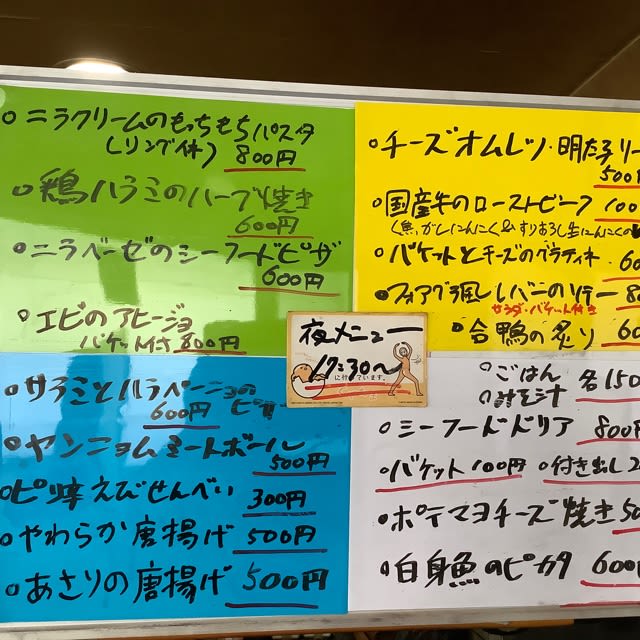 ○ニラクリームのもっちもちパスタ
(リング付) 800円
○鶏ハラミのハーブ焼き
600円
○ニラベーゼのシーフードピザ
600円
○エビのアヒージョ
バケット付き 800円
○チーズオムレツ・明太子
500円
○国産牛のローストビーフ
○バケットとチーズのグラティネ
サラダ・バケット付き
○合鴨の炙り
夜メニュー
17:30〜
に行っています。
○サラミとハラペーニョの
600円 ピザ
○ヤンニョムミートボール
500円
○ピリ辛えびせんべい 300円
○やわらか唐揚げ 500円
○あさりの唐揚げ 500円
○ごはん
○みそ汁 各150
○シーフードドリア 800円
○バケット 100円 ○付き出し
○ポテマヨチーズ焼き
○白身魚のピカタ 600円